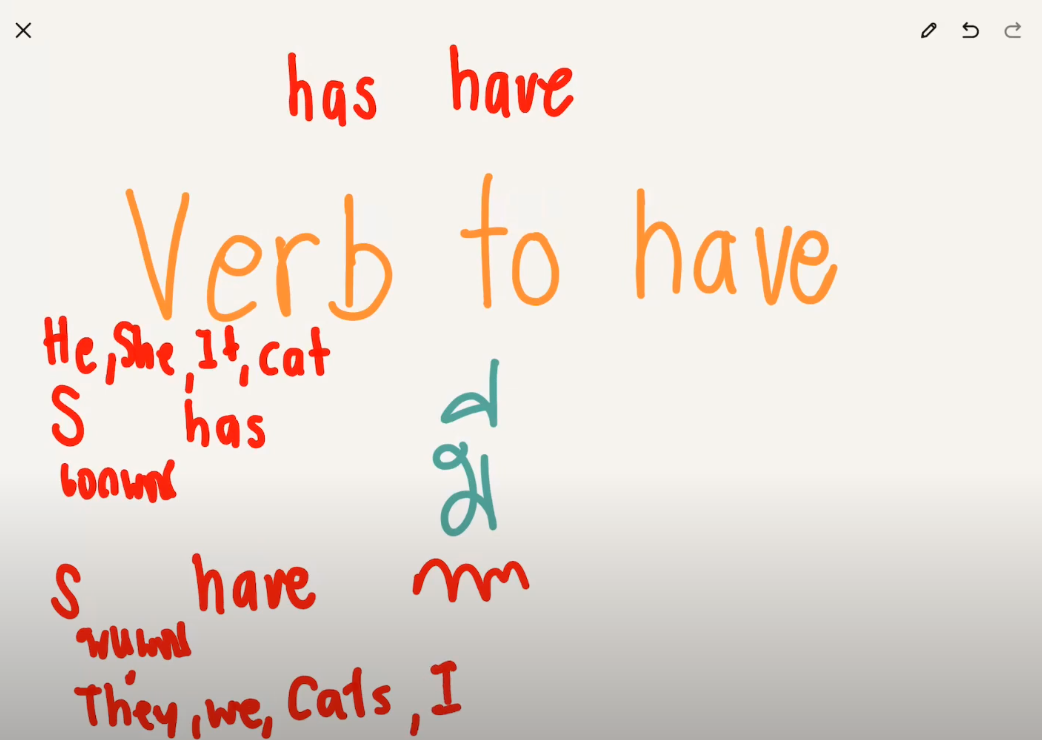 has have
Verb to have
He, She, It, cat
S has
เอกพจน์
มี
S have
พหูพจน์
They, we, Cats, I